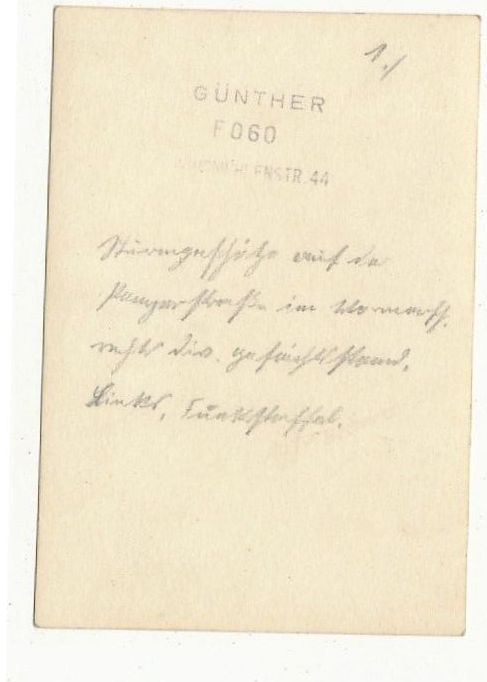 1./
GÜNTHER
FOGO
ENSTR. 44
Sturmgeschütze auf der
Panzerstraße im Vormarsch.
rechts Div. gefechtsstand.
Links, Funkstaffel.